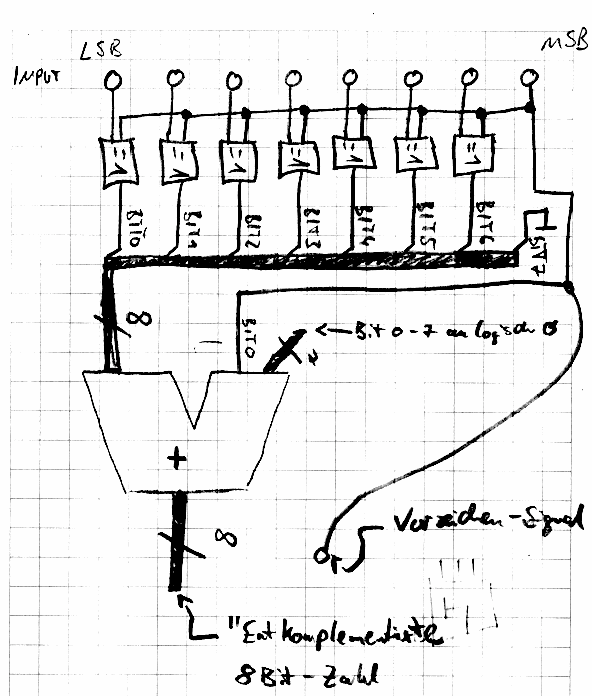 LSB
MSB
INPUT
=1 =1 =1 =1 =1 =1 =1
BIT0 BIT1 BIT2 BIT3 BIT4 BIT5 BIT6 BIT7
8
BIT0
Bit 0-7 an logisch 0
+
8
Vorzeichen-Signal
"Entkomplementierte
8Bit-Zahl